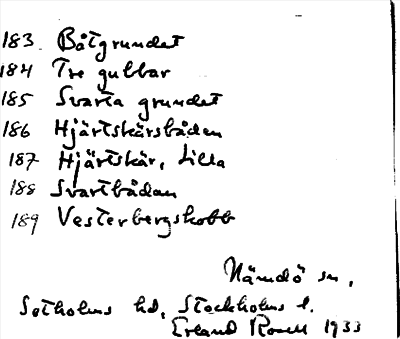 183 Båtgrundet
184 Tre gubbar
185 Svarta grundet
186 Hjärtskärsbådan
187 Hjärtskär, Lilla
188 Svartbådan
189 Vesterbergskobb
Nämdö sn,
Sotholms hd, Stockholms l.
Erland Rosell 1933